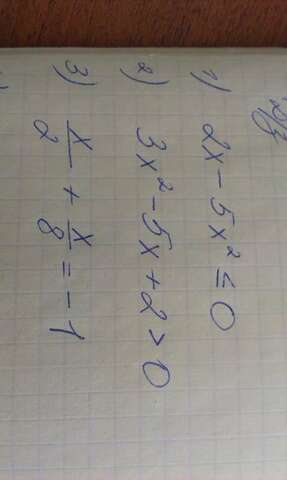 1) 2x - 5x² ≤ 0
2) 3x² - 5x + 2 > 0
3) x/2 + x/8 = -1